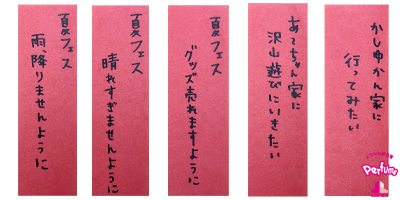 かしゆかん家に
行ってみたい
あ〜ちゃん家に
沢山遊びにいきたい
夏フェス
グッズ売れますように
夏フェス
晴れすぎませんように
夏フェス
雨、降りませんように
Perfume